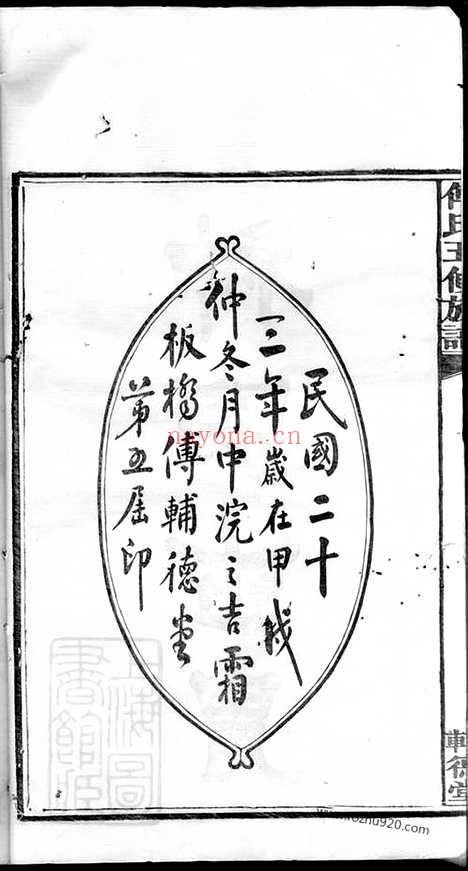 民國二十
三年歲在甲戌
仲冬月中浣之吉霜
板橋傅輔德堂
第五屆印
傅氏五修族譜
輔德堂
上海圖
書館藏
nayona.cn